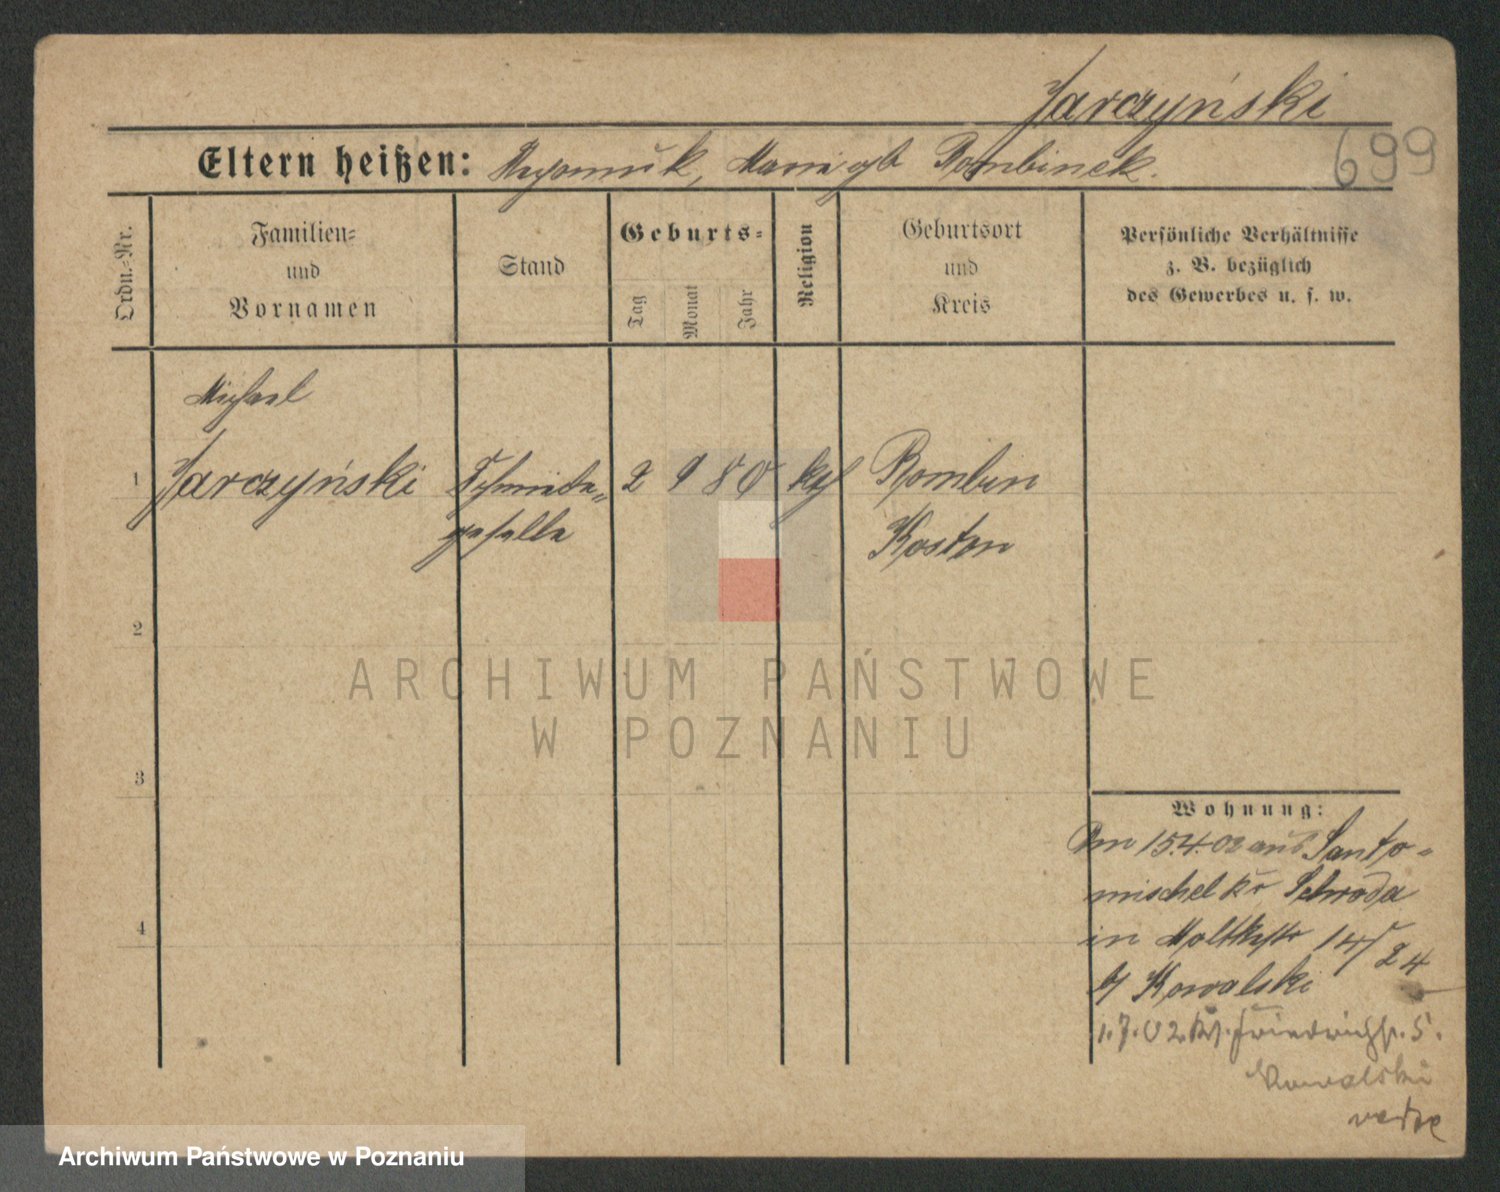 Jarczyński
699
Eltern heißen: Nepomuk, Marie gb Rombinek.
Ordn.-Nr.
Familien-
und
Vornamen
Stand
Geburts-
Tag
Monat
Jahr
Religion
Geburtsort
und
Kreis
Persönliche Verhältnisse
z. B. bezüglich
des Gewerbes u. s. w.
Michael
1 Jarczyński Schmiede- 2 9 80 kth Rombin
geselle Kosten
2
ARCHIWUM PAŃSTWOWE
W POZNANIU
3
Wohnung:
Am 15.4.02 aus Santo-
mischel Kr Schroda
4
in Moltkestr 14/24
b/ Kowalski
1.7.02. Friedrichstr. 5.
Kowalski
Archiwum Państwowe w Poznaniu